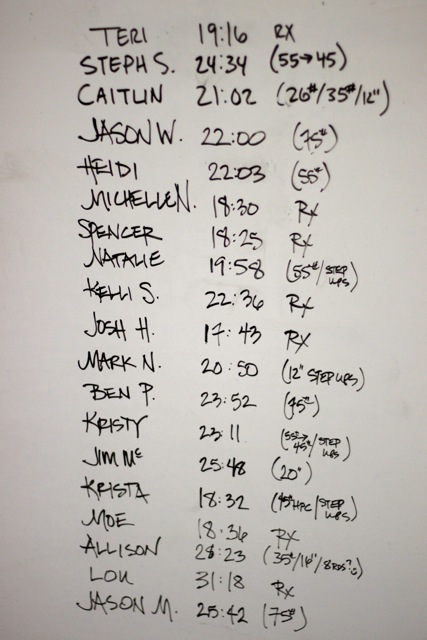 TERI 19:16 RX
STEPH S. 24:34 (55→45)
CAITLIN 21:02 (26#/35#/12")
JASON W. 22:00 (75#)
HEIDI 22:03 (55#)
MICHELLE N. 18:30 RX
SPENCER 18:25 RX
NATALIE 19:58 (55#/STEP UPS)
KELLI S. 22:36 RX
JOSH H. 17:43 RX
MARK N. 20:50 (12" STEP UPS)
BEN P. 23:52 (95#)
KRISTY 23:11 (55#→45#/STEP UPS)
JIM Mc 25:48 (20")
KRISTA 18:32 (45#HPC/STEP UPS)
MOE 18:36 RX
ALLISON 28:23 (35#/16"/8 RDS?☺)
LOU 31:18 RX
JASON M. 25:42 (75#)